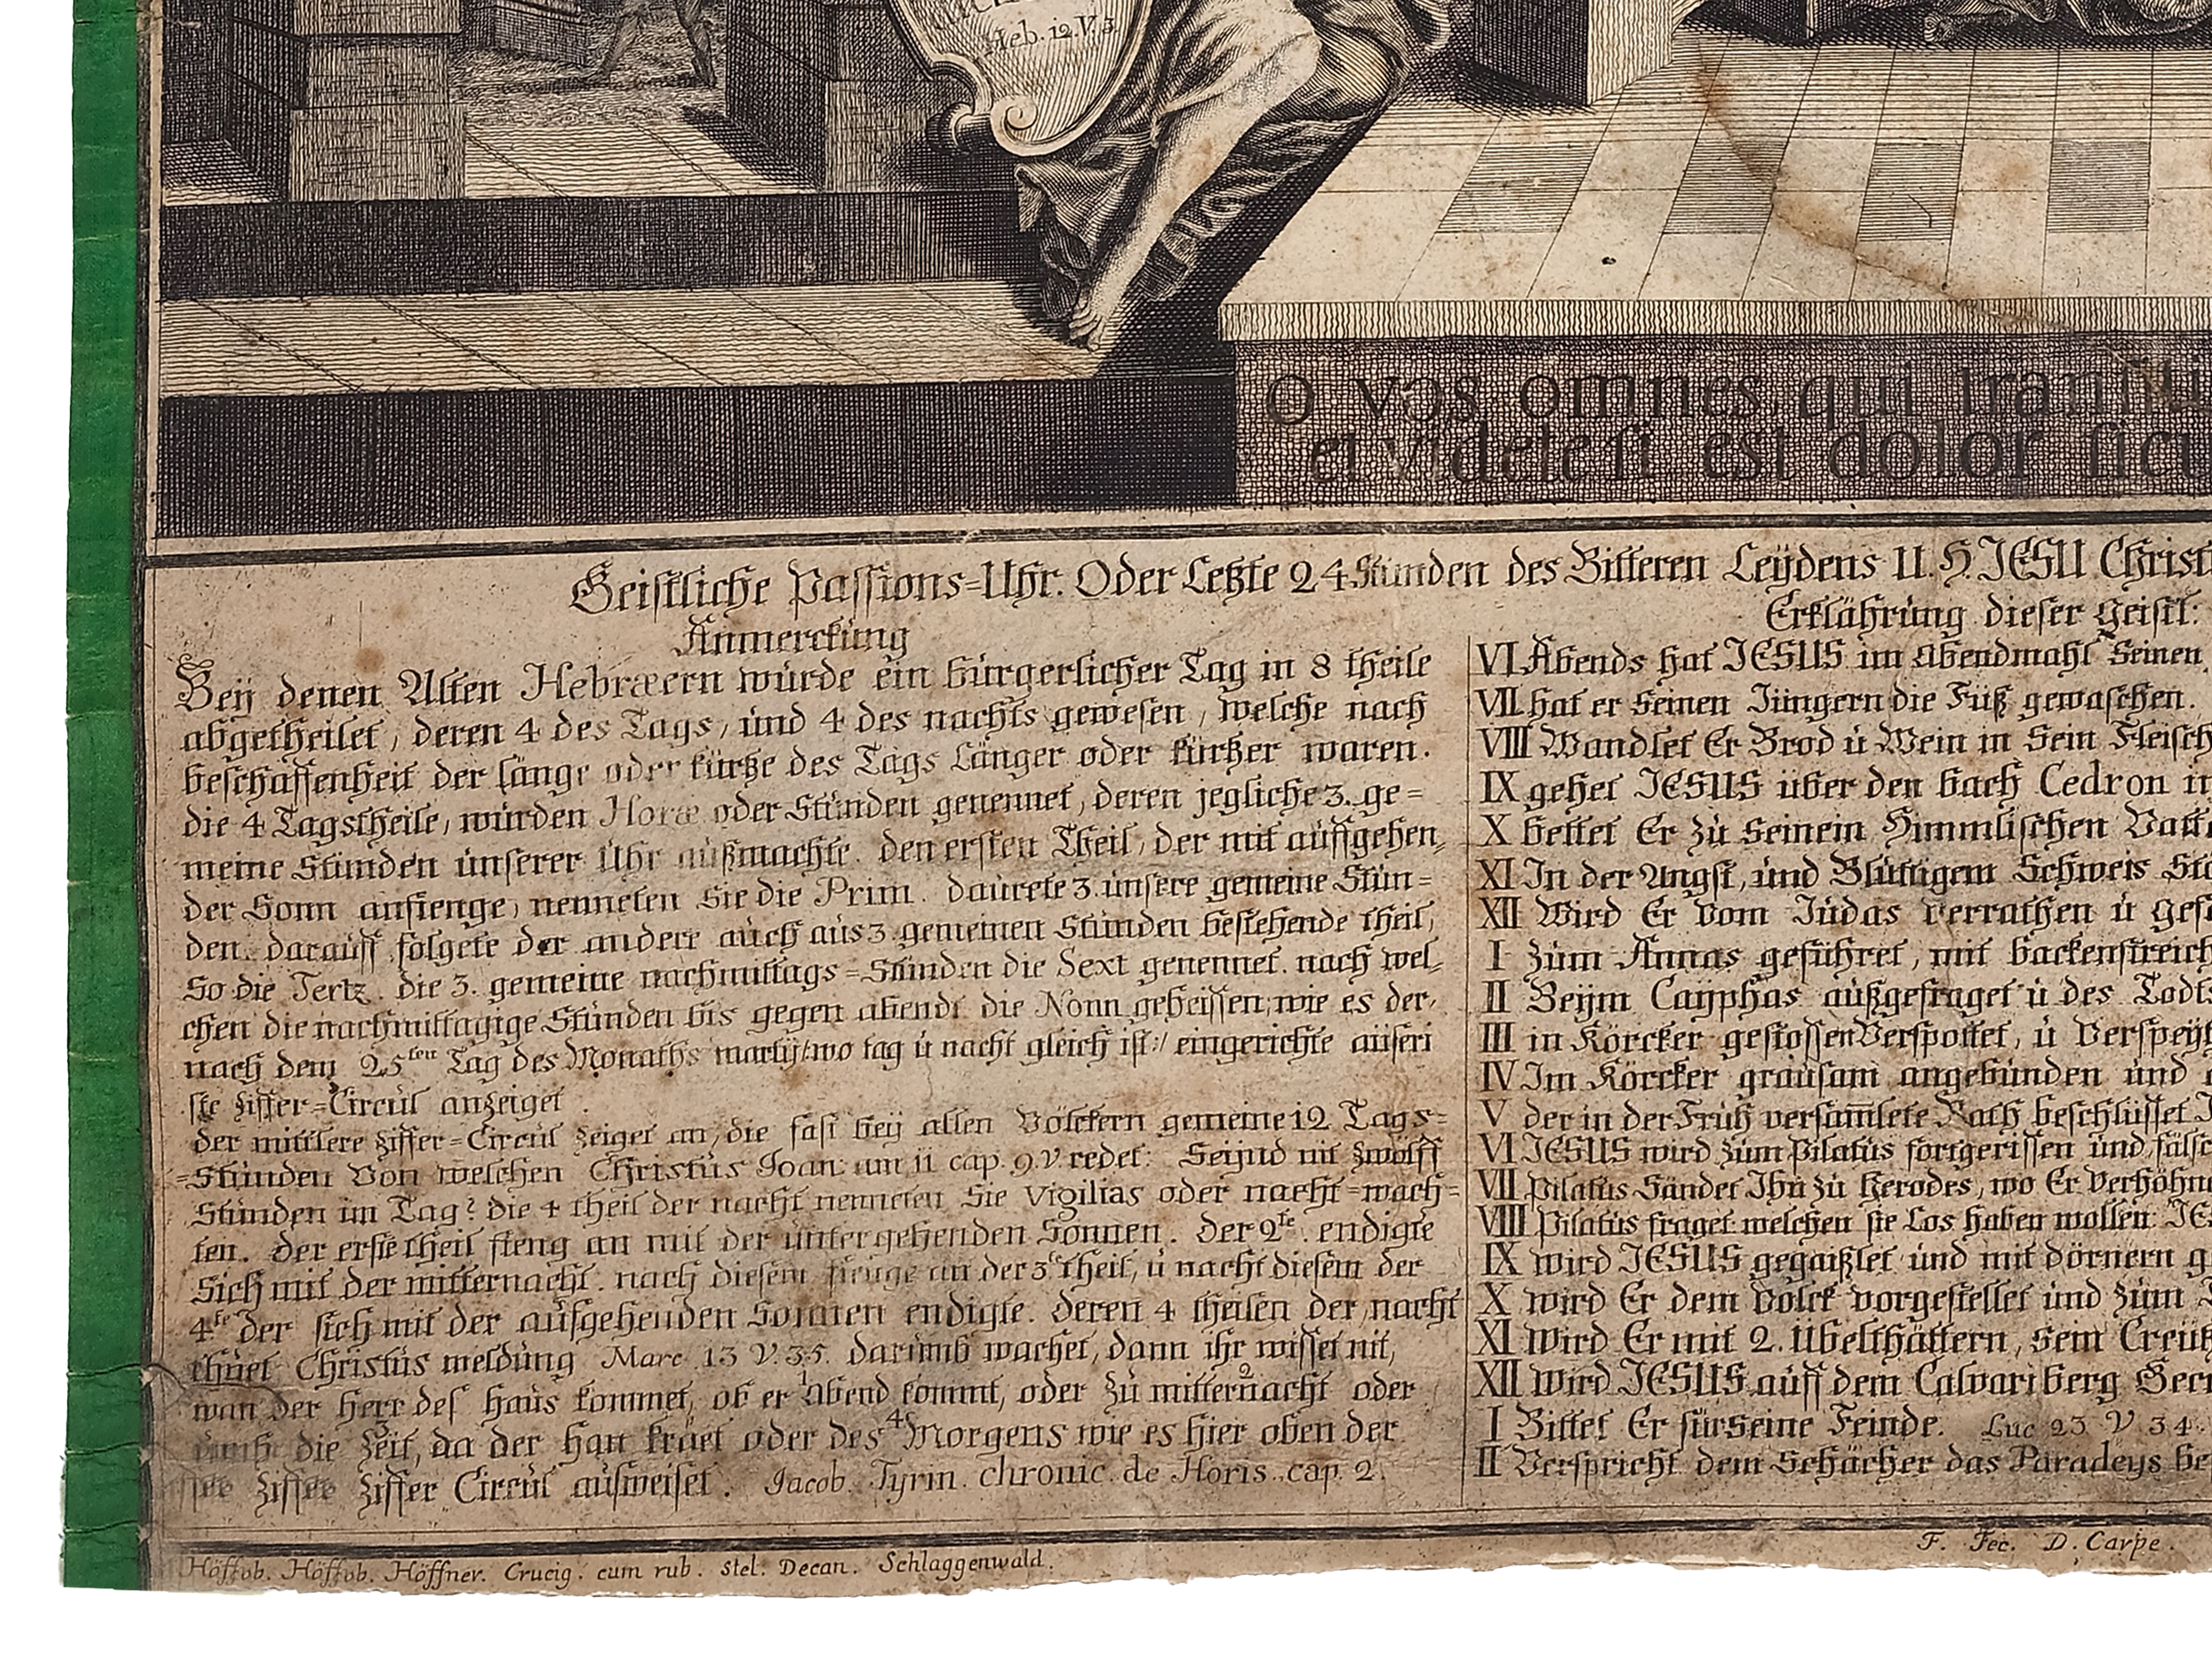 Heb. 12. V. 3.
O vos omnes, qui transiti
et videte si est dolor sicu
Geistliche Passions=Uhr. Oder Letzte 24 Stunden des Bitteren Leÿdens U. H. JESU Christ
Anmerckung
Beÿ denen Alten Hebræern wurde ein bürgerlicher Tag in 8 theile
abgetheilet, deren 4 des Tags, und 4 des nachts gewesen, welche nach
beschaffenheit der länge oder kürtze des Tags Länger oder kürtzer waren.
die 4 Tagstheile, würden Horæ oder Stunden genennet, deren jegliche 3. ge=
meine Stunden unserer Uhr außmachte. den ersten Theil, der mit auffgehen,
der Sonn anfienge, nenneten Sie die Prim. daurete 3. unsere gemeine Stün=
den. darauff folgete der andere auch aus 3. gemeinen Stunden bestehende theil,
So die Tertz. die 3. gemeine nachmittags=Stunden die Sext genennet. nach wel,
chen die nachmittagige Stunden bis gegen abendt die Nonn geheissen, wie es der,
nach dem 25ten Tag des Monaths martÿ/: wo tag ü nacht gleich ist :/ eingerichte aüseri
ste ziffer=Circul anzeiget.
der mittlere ziffer=Circul zeiget an, die fast beÿ allen Völckern gemeine 12 Tags=
=Stunden Von welchen Christus Joan: am 11 cap. 9. V. redet: Seÿnd nit zwölff
Stunden im Tag? die 4 theil der nacht nenneten Sie Vigilias oder nacht=wach=
ten. der erste theil fieng an mit der untergehenden Sonnen. der 2te. endigte
Sich mit der mitternacht. nach diesem fienge an der 3te theil, ü nacht diesem der
4te der sich mit der aufgehenden Sonnen endigte. deren 4 theilen der nacht
thuet Christus meldung Marc 13 V. 35. darumb wachet, dann ihr wisset nit,
wan der Herr des haus kommet, ob er 1 Abend kommt, oder zu mitter2nacht oder
umb die 3 Zeit, da der han kräet oder des 4 Morgens wie es hier oben der
ziffer Circul ausweiset. Jacob. Tyrin. chronic. de Horis. cap. 2.
Erklährung dieser geistl:
VI Abends hat JESUS im abendmahl Seinen
VII hat er Seinen Jüngern die Füß gewaschen.
VIII Wandlet Er Brod ü Wein in Sein Fleisch
IX gehet JESUS über den bach Cedron in
X bettet Er zu Seinem Himmlischen Vatte
XI In der Angst, und Blüttigem Schweis
XII Wird Er vom Judas verrathen ü gef
I Zum Annas geführet, mit backenstreich
II Beÿm Caÿphas außgefraget ü des Todts
III in Körcker gestossen Verspottet, ü Verspeÿt
IV Im Körcker grausam angebunden und
V der in der Früh versamlete Rath beschlüsset
VI JESUS wird zum Pilatus fortgerissen und fälsc
VII Pilatus Sändet Ihn zu Herodes, wo Er Verhöhne
VIII Pilatus fraget welchen sie Los haben wollen: JES
IX wird JESUS gegaißlet und mit dörnern g
X wird Er dem Volck vorgestellet und zum
XI wird Er mit 2. übelthättern, sein Creütz
XII wird JESUS auff dem Calvariberg Gecr
I Bittet Er für seine Feinde. Luc 23 V 34.
II Verspricht dem Schächer das Paradeÿs
Höffob. Höffob. Höffner. Crucig. cum rub. stel. Decan. Schlaggenwald.
F. Fec. D. Carpe.